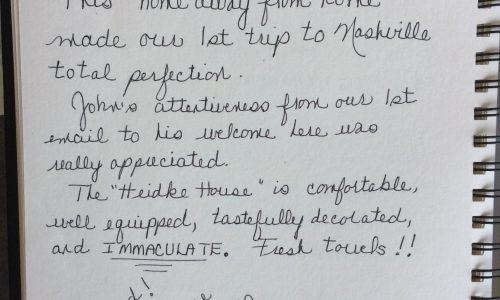 This "home away from home"
made our 1st trip to Nashville
total perfection.
John's attentiveness from our 1st
email to his welcome here was
really appreciated.
The "Heidke House" is comfortable,
well equipped, tastefully decorated,
and IMMACULATE. Fresh towels!!